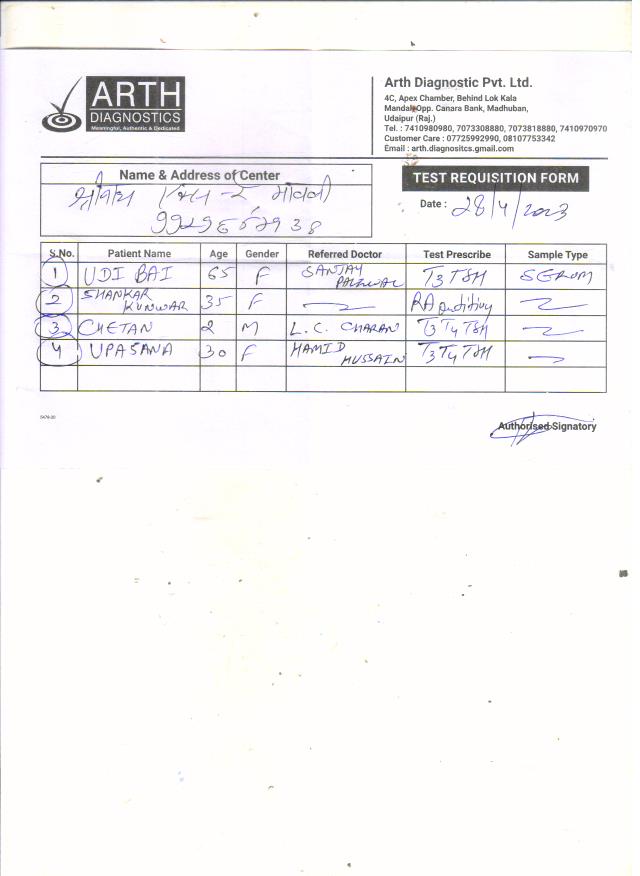 ARTH
DIAGNOSTICS
Meaningful, Authentic & Dedicated
Arth Diagnostic Pvt. Ltd.
4C, Apex Chamber, Behind Lok Kala
Mandal Opp. Canara Bank, Madhuban,
Udaipur (Raj.)
Tel. : 7410980980, 7073308880, 7073818880, 7410970970
Customer Care : 07725992990, 08107753342
Email : arth.diagnositcs.gmail.com
Name & Address of Center
TEST REQUISITION FORM
Date : 28/4/2023
S.No. Patient Name Age Gender Referred Doctor Test Prescribe Sample Type
1 UDI BAI 65 F SANJAY PALIWAL T3 TSH SEROM
2 SHANKAR KUNWAR 35 F RA
3 CHETAN 2 M L.C. CHARAN T3 T4 TSH
4 UPASANA 30 F HAMID HUSSAIN T3 T4 TSH
Authorised Signatory